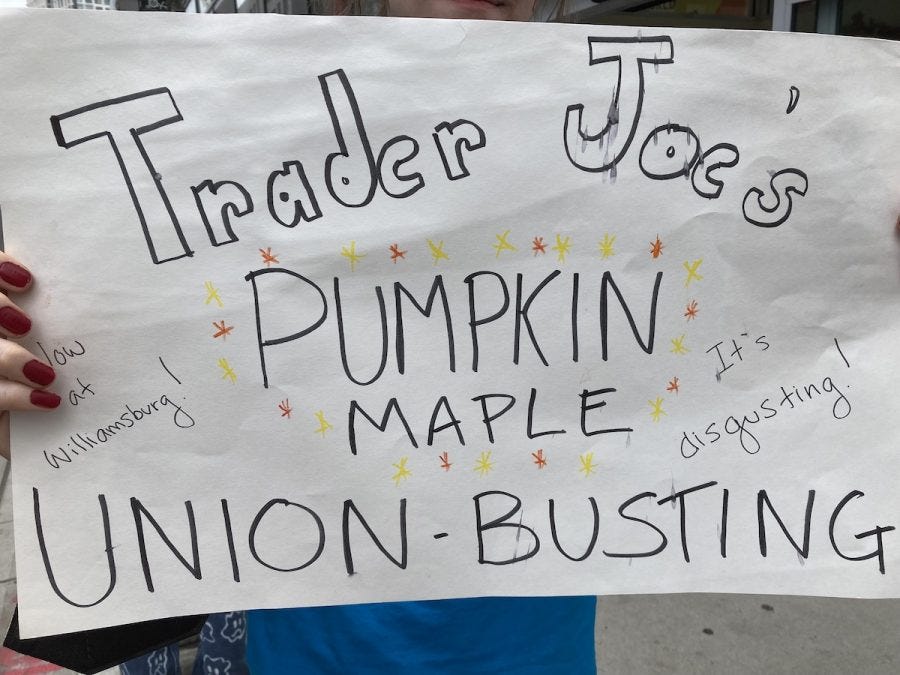 Trader Joe's
PUMPKIN
MAPLE
at
Williamsburg!
It's
disgusting!
UNION-BUSTING